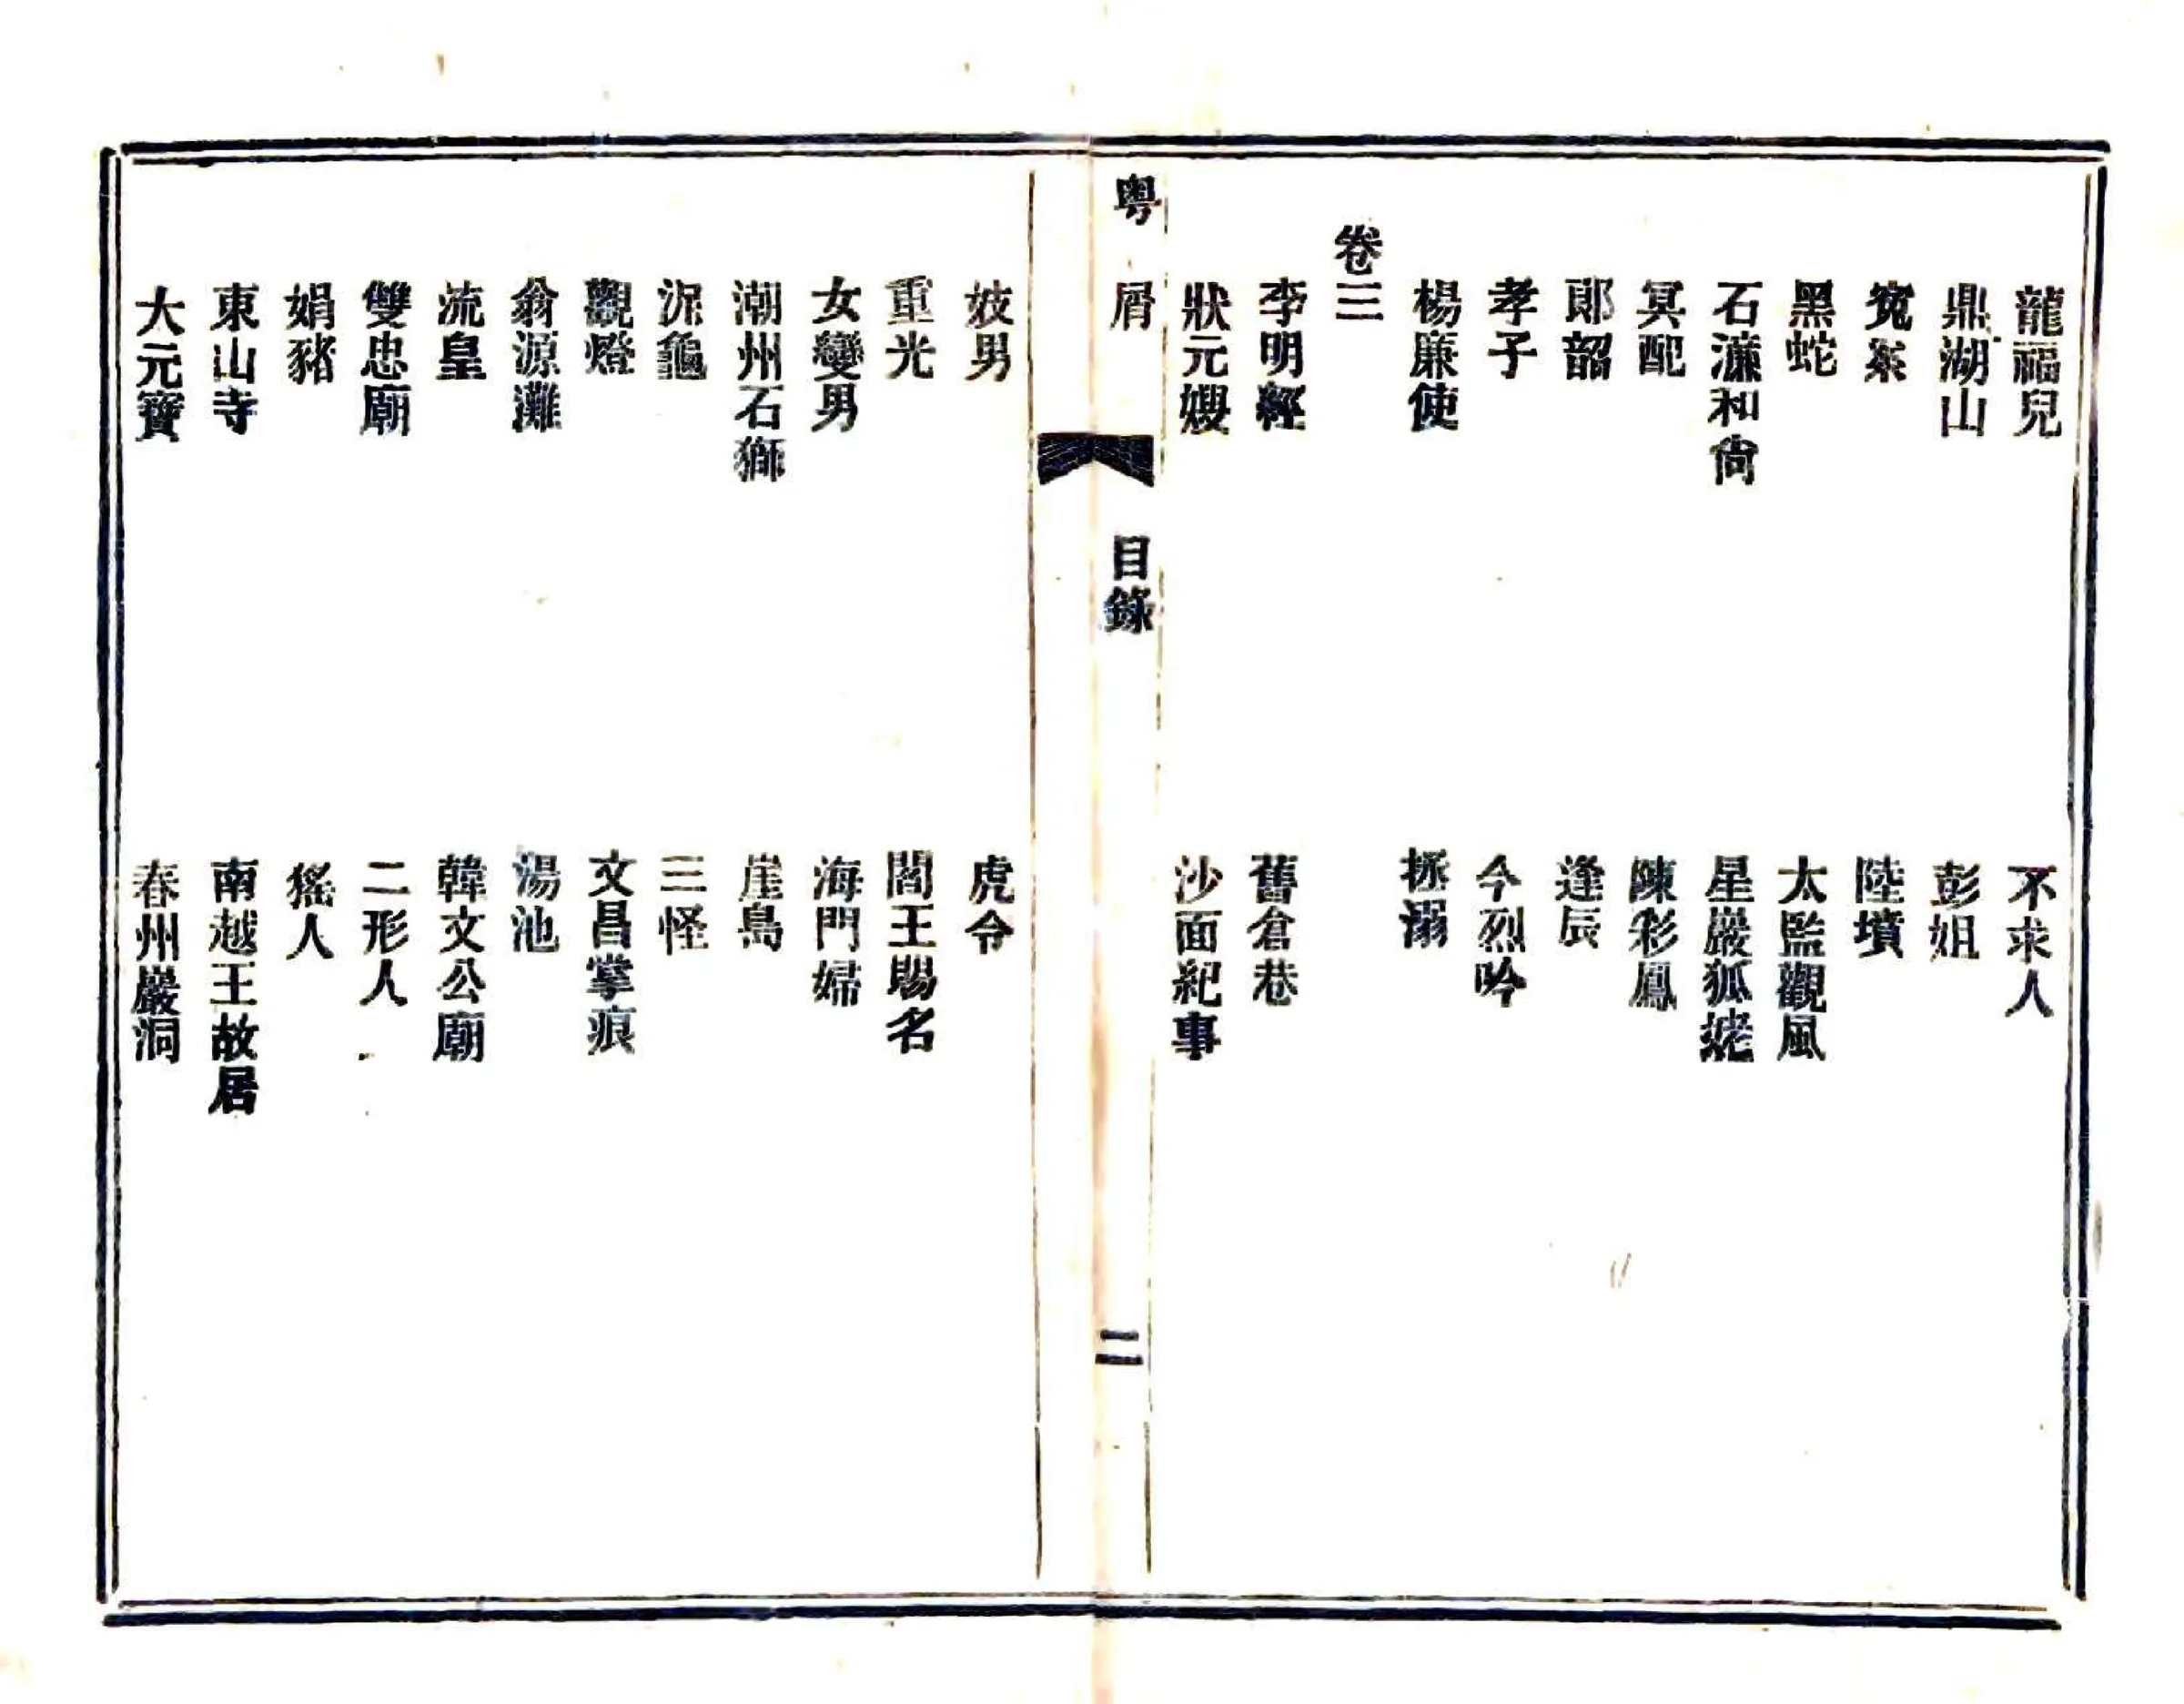 龍福兒
不求人
鼎湖山
彭姐
冤案
陸墳
黑蛇
太監觀風
石濂和尙
星巖狐姥
冥配
陳彩鳳
鄖韶
逢辰
孝子
今烈吟
楊廉使
拯溺
卷三
李明經
舊倉巷
狀元嫂
沙面紀事
粵屑
目錄
二
妓男
虎令
重光
閻王賜名
女變男
海門婦
潮州石獅
崖島
泥龜
三怪
觀燈
文昌掌痕
翁源灘
湯池
流皇
韓文公廟
雙忠廟
二形人
娟豬
猺人
東山寺
南越王故居
大元寶
春州巖洞